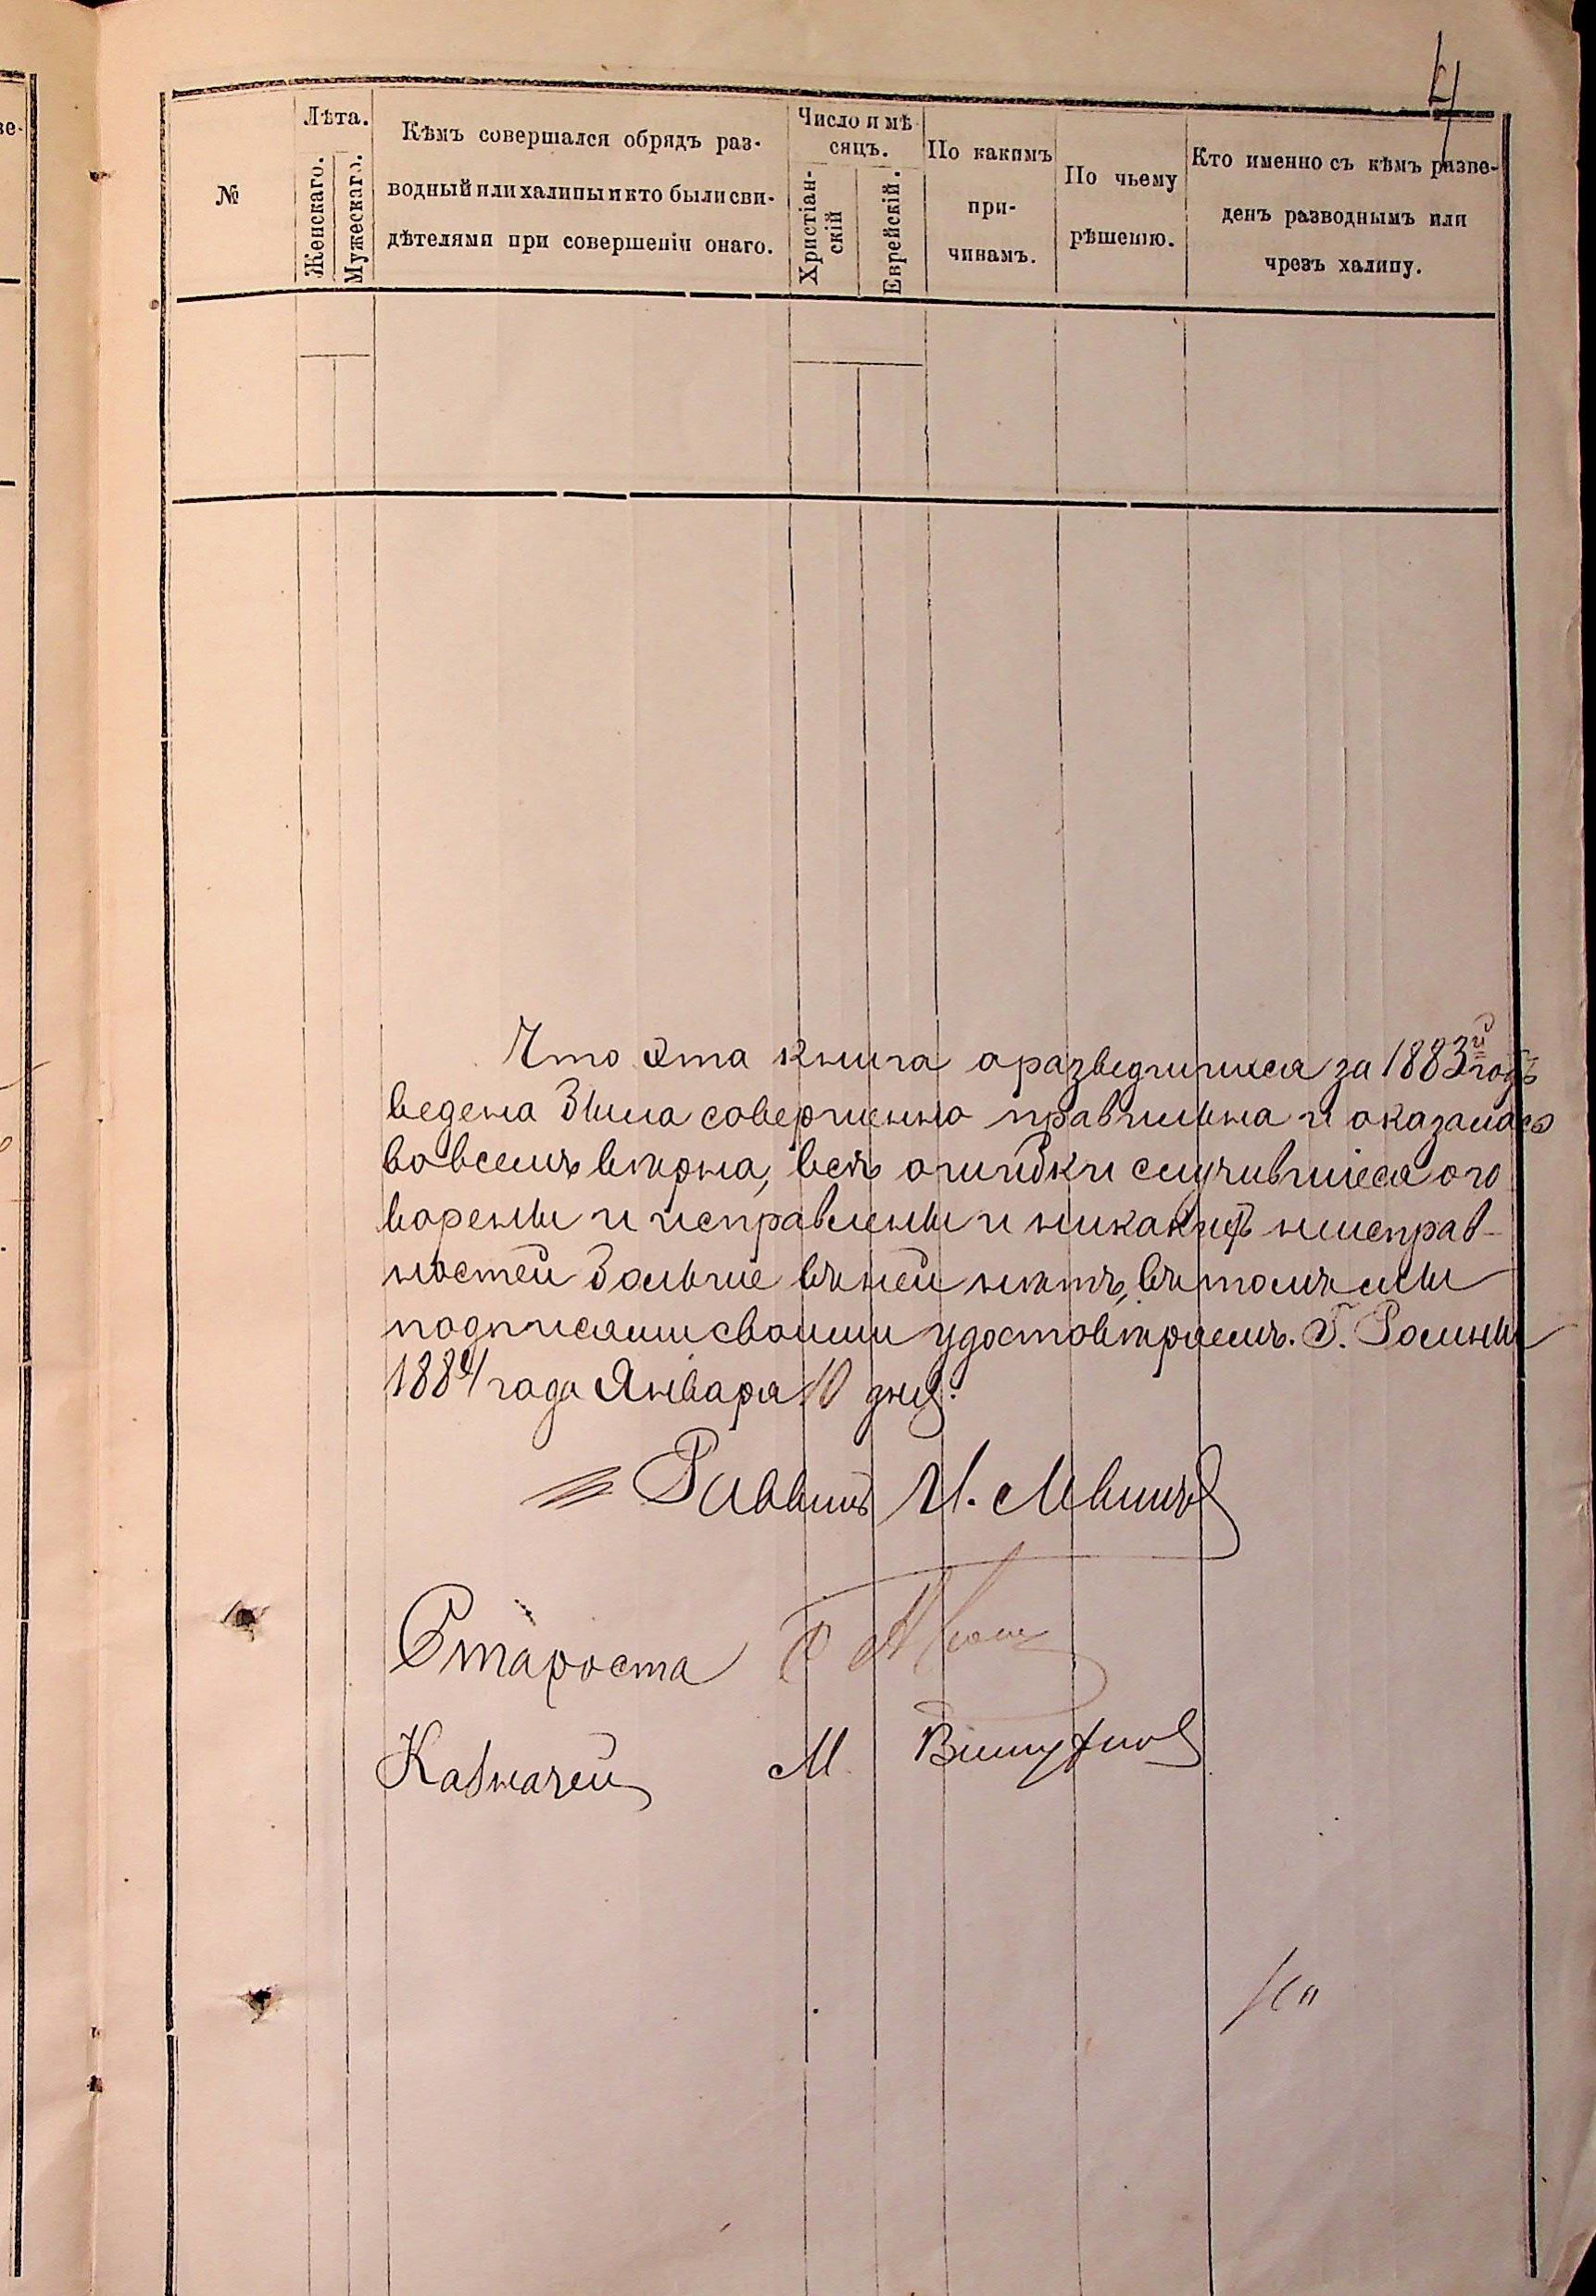 4
№
Лѣта.
Женскаго.
Мужескаго.
Кѣмъ совершался обрядъ раз-
водный или халицы и кто были сви-
дѣтелями при совершеніи онаго.
Число и мѣ
сяцъ.
Христіан-
скій
Еврейскій.
По какимъ
при-
чинамъ.
По чьему
рѣшенію.
Кто именно съ кѣмъ разве-
денъ разводнымъ или
чрезъ халицу.
Что эта книга о разведшихся за 1883й годъ
ведена была совершенно правильна и оказалась
во всемъ вѣрна, всѣ ошибки случившіеся ого
ворены и исправлены и никакихъ неисправ-
ностей больше въ ней нѣтъ, въ томъ мы
подписями своими удостовѣряемъ. Г. Ромны
1884 года Января 10 дня.
Раввинъ И. Левинъ
Староста
Казначей М.